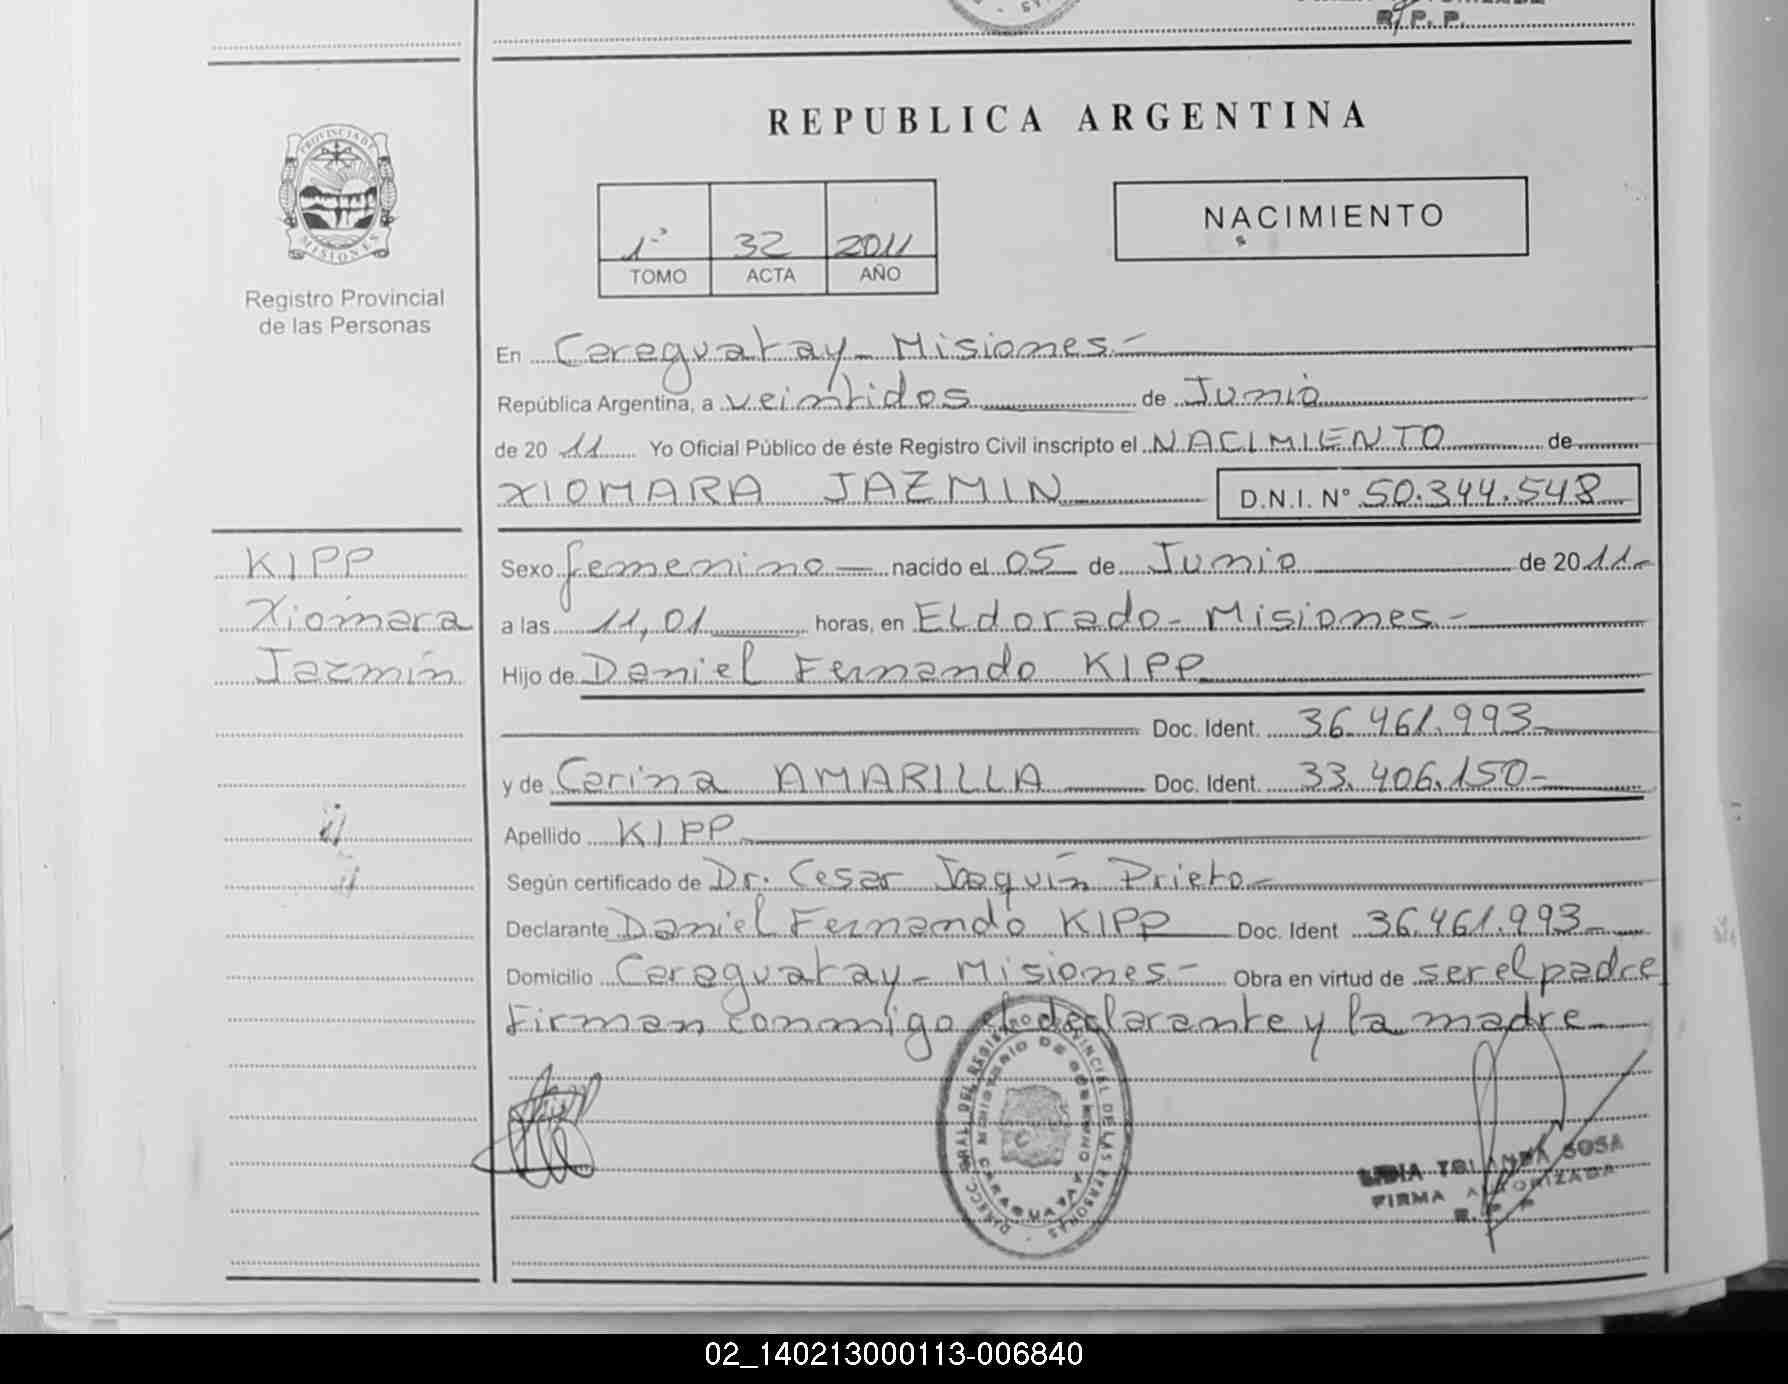 R.P.P.
REPUBLICA ARGENTINA
PROVINCIA DE
MISIONES
Registro Provincial
de las Personas
1º 32 2011
TOMO ACTA AÑO
NACIMIENTO
En Caraguatay - Misiones -
República Argentina, a veintidos de Junio
de 20 11 Yo Oficial Público de éste Registro Civil inscripto el NACIMIENTO de
XIOMARA JAZMIN D.N.I. Nº 50.344.548
KIPP
Xiomara
Jazmín
Sexo femenino — nacido el 05 de Junio de 20 11.-
a las 11,01 horas, en ELdorado - Misiones -
Hijo de Daniel Fernando KIPP
Doc. Ident. 36.461.993-
y de Carina AMARILLA Doc. Ident. 33.406.150-
Apellido KIPP
Según certificado de Dr. Cesar Joaquín Prieto -
Declarante Daniel Fernando KIPP Doc. Ident 36.461.993-
Domicilio Caraguatay - Misiones - Obra en virtud de ser el padre
Firman conmigo el declarante y la madre
DIRECC. GRAL. DEL REGISTRO PROVINCIAL DE LAS PERSONAS
MINISTERIO DE GOBIERNO
CARAGUATAY
SOSA
FIRMA AUTORIZADA
R. P. P.
02_140213000113-006840